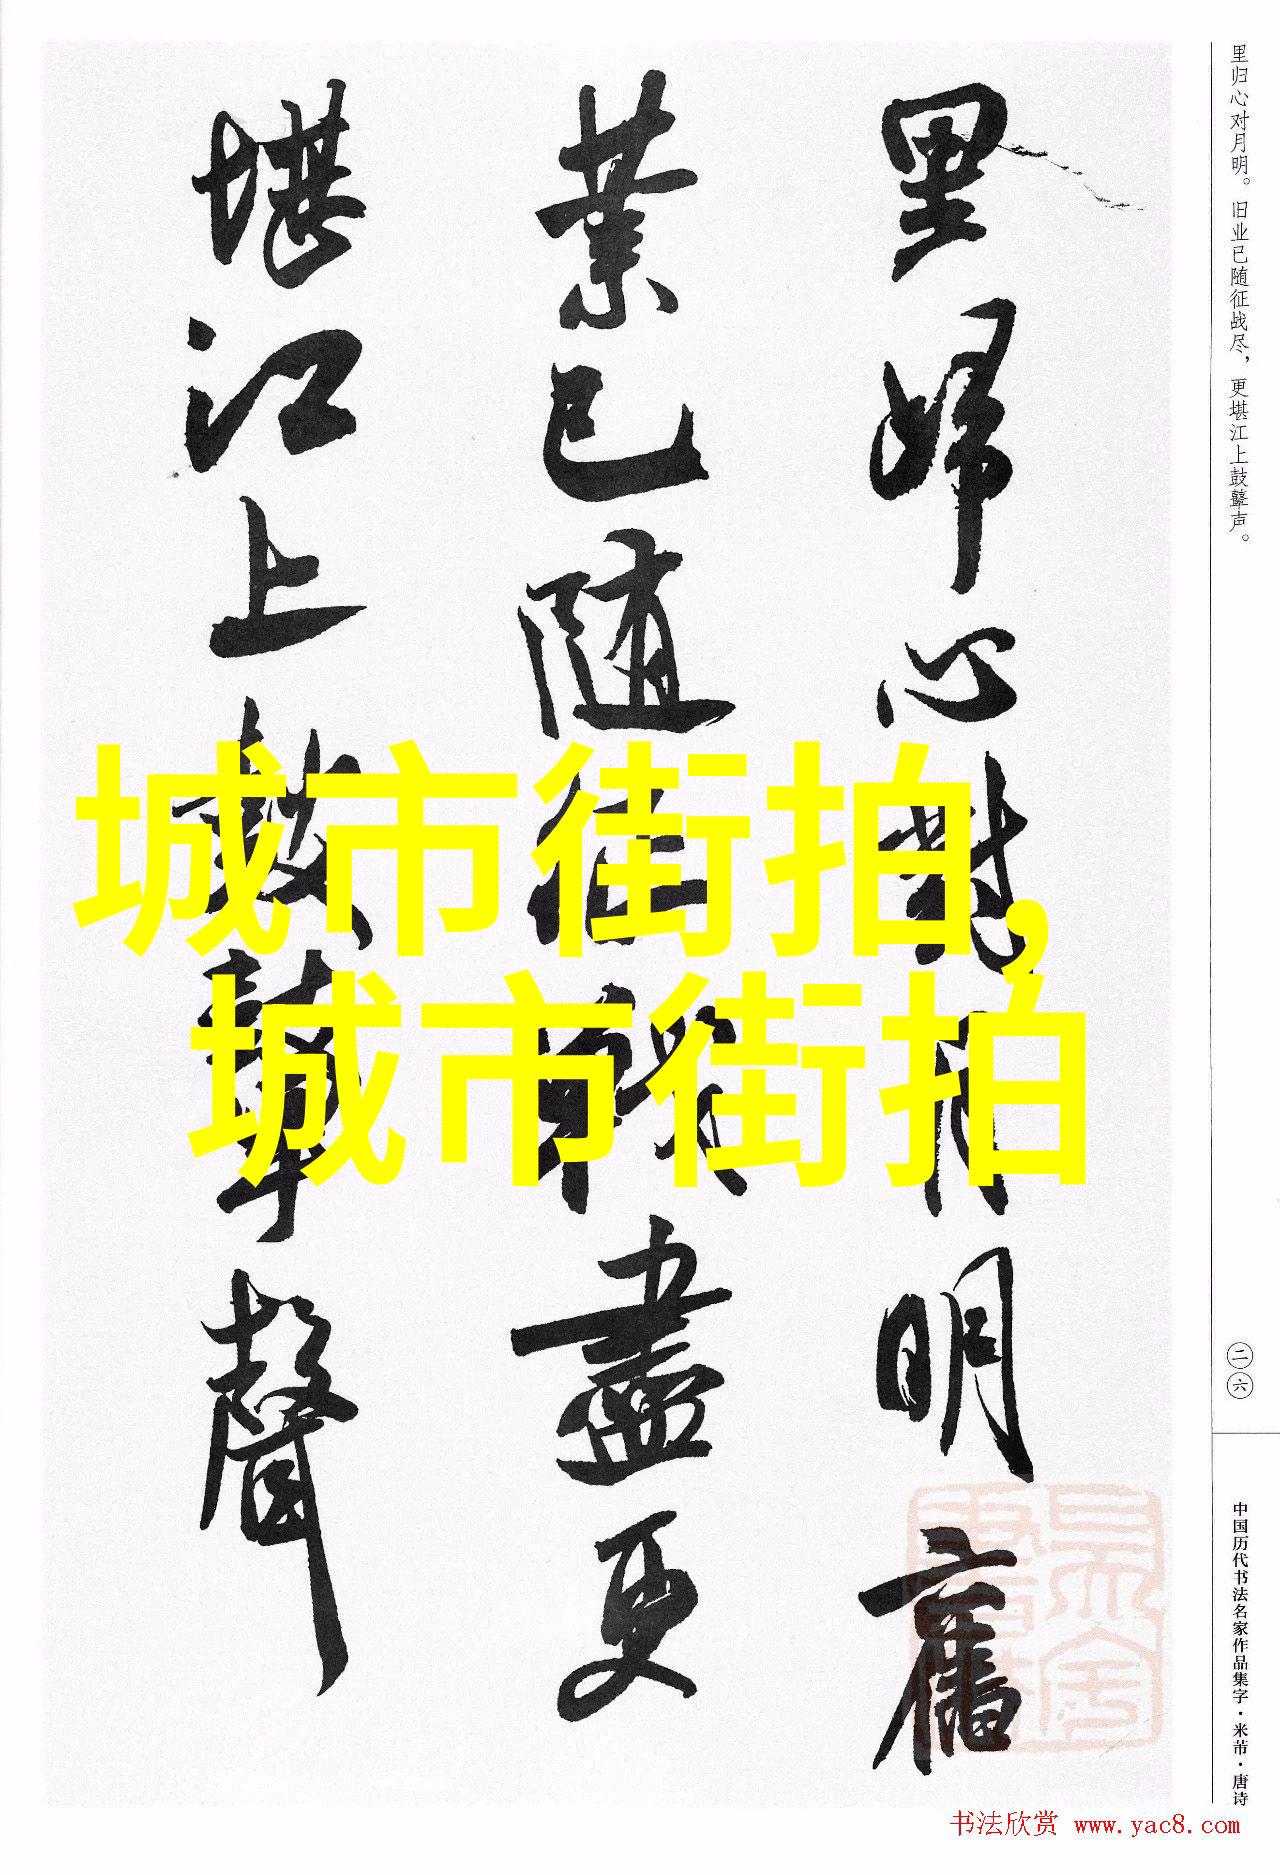 里归心对月明。旧业已随征战尽，更堪江上鼓鼙声。
里歸心對月明舊
業已隨征戰盡更
堪江上鼓鼙聲
城市街拍,
城市街拍
二六
中国历代书法名家作品集字·米芾·唐诗
书法欣赏 www.yac8.com